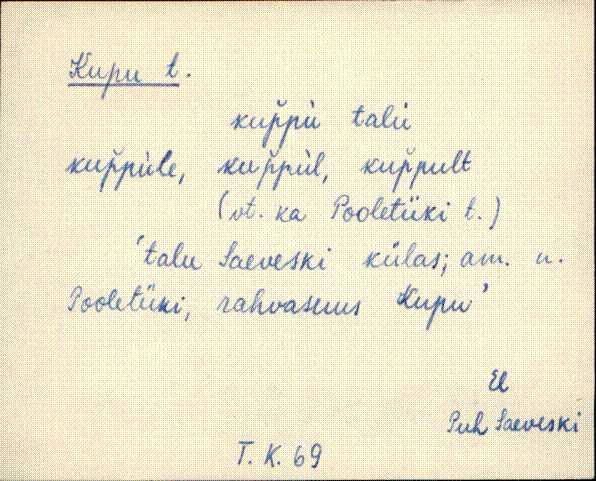 Kupu t.
kup̆pù talù
kup̆pùle, kup̆pùl, kup̆pult
(vt. ka Pooletüki t.)
'talu Saeveski külas; am. n.
Pooletüki, rahvasuus Kupu'
El
Puh Saeveski
T. K. 69